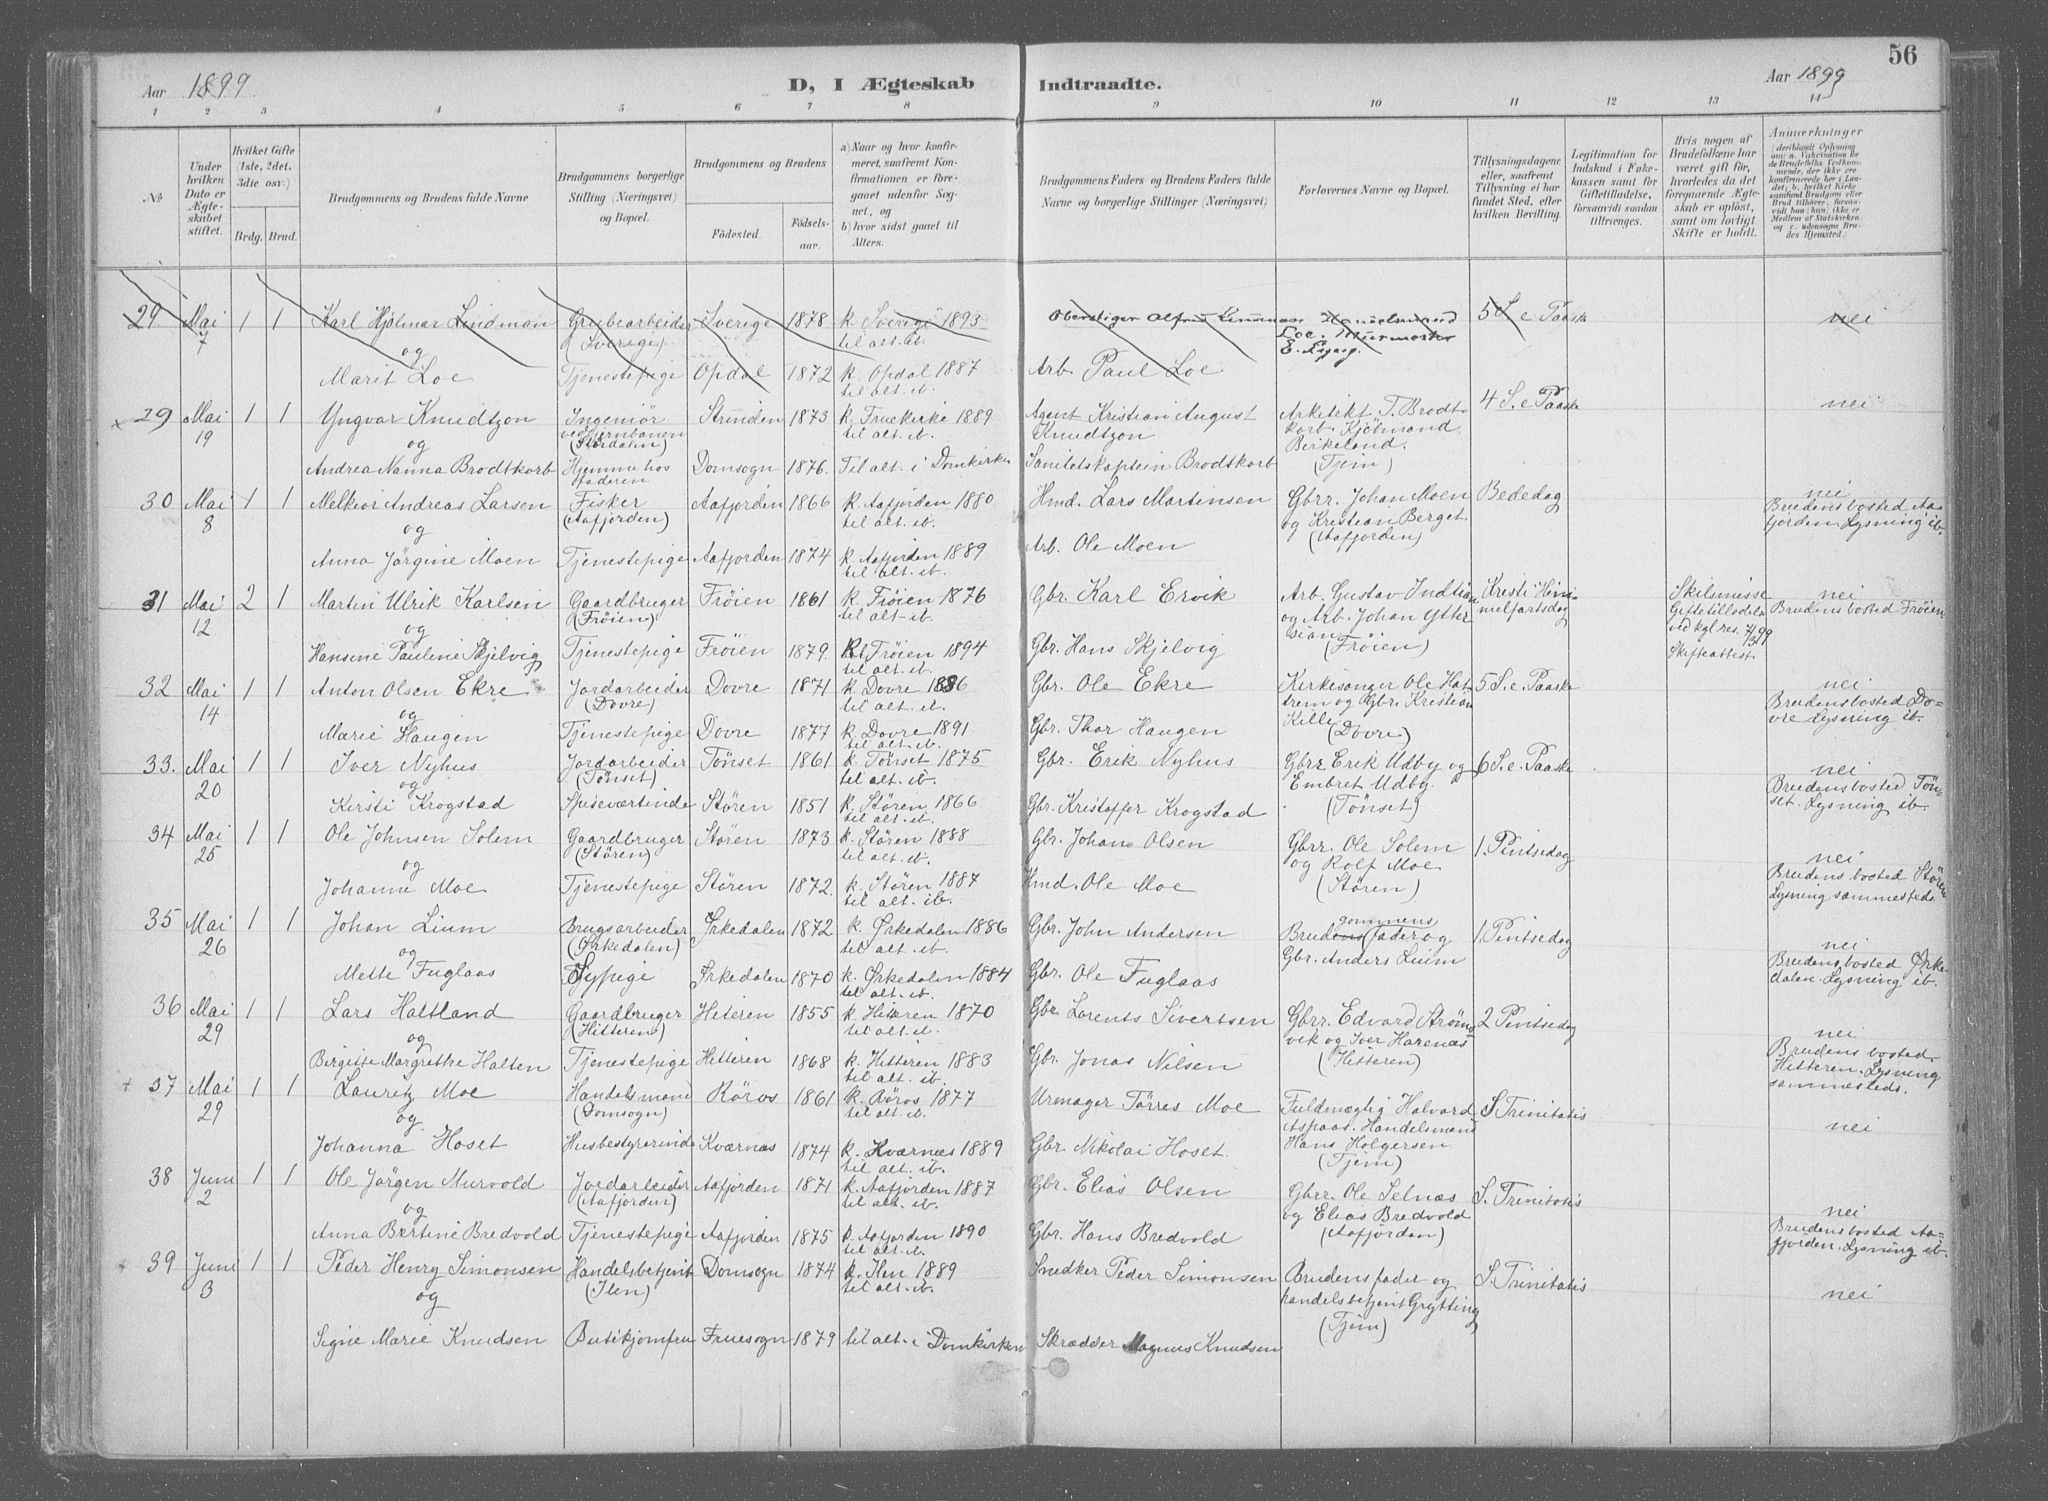 Aar 1899. D, I Ægteskab Indtraadte. Aar 1899 56
1 2 3 4 5 6 7 8 9 10 11 12 13 14
No
Under hvilken Dato er Ægteskabet stiftet.
Hvilket Gifte (1ste, 2det, 3die osv.)
Brdg. Brud.
Brudgommens og Brudens fulde Navne
Brudgommens borgerlige Stilling (Næringsvei) og Bopæl.
Brudgommens og Brudens
Födested. Födselsaar.
a) Naar og hvor konfirmeret, saafremt Konfirmationen er foregaaet udenfor Sognet, og
b) hvor sidst gaaet til Alters.
Brudgommens Faders og Brudens Faders fulde Navne og borgerlige Stillinger (Næringsvei)
Forlovernes Navne og Bopæl.
Tillysningsdagene eller, saafremt Tillysning ei har fundet Sted, efter hvilken Bevilling.
Legitimation for Indskud i Fakkassen samt for Giftetilladelse, forsaavidt saadan tiltrænges.
Hvis nogen af Brudefolkene har været gift för, hvorledes da det foregaaende Ægteskab er oplöst, samt om lovligt Skifte er holdt.
Anmerkninger (deriblandt Oplysning om: a. Vaccination for de Brudefolks Vedkommende, der ikke ere konfirmerede her i Landet; b. hvilket Kirkesamfund Brudgom eller Brud tilhører, forsaavidt han (hun) ikke er Medlem af Statskirken, og c. udensogns Brudes Hjemsted.)
29 Mai 7 1 1 Karl Hjalmar Lindman Grubearbeider (Sverige) Sverige 1878 k. Sverige 1893 til alt. ib. Oberstiger Alfred Lindman Handelsmand Loe, Murmester E. Espaas. 5 S. e Paaske nei
og
Marit Loe Tjenestepige Opdal 1872 k. Opdal 1887 til alt. ib. Arb. Paul Loe
29 Mai 19 1 1 Yngvar Knudtzon Ingeniör ved Jernbanen (Stördalen) Strinden 1873 k. Fruekirke 1889 til alt. ib. Agent Kristian August Knudtzon Arkitekt T. Brodtkorb. Kjöbmand Birkeland. (Tjem) 4 S. e Paaske nei
og
Andrea Nanna Brodtkorb Hjemme hos faderen Domsogn 1876. Til alt. i Domkirken Sanitetskaptein Brodtkorb
30 Mai 8 1 1 Melkior Andreas Larsen Fisker (Aafjorden) Aafjorden 1866 k. Aafjorden 1880 til alt. ib. Hmd. Lars Martinsen Gbrr. Johan Moen og Kristian Berget. (Aafjorden) Bededag nei Brudens bosted Aafjorden. Lysning ib.
og
Anna Jörgine Moen Tjenestepige Aafjorden 1874 k. Aafjorden 1889 til alt. ib. Arb. Ole Moen
31 Mai 12 2 1 Martin Ulrik Karlsen Gaardbruger (Fröien) Fröien 1861 k. Fröien 1876 til alt ib. Gbr. Karl Ervik Arb. Gustav Indtian og Arb. Johan Yttersian (Fröien) Kristi Himmelfartsdag Skilsmisse Giftetilladelse ved kgl. res. 7/3 99 Skifteattest. nei Brudens bosted Fröien
og
Hansine Pauline Skjelvig Tjenestepige Fröien 1879. k. Fröien 1894 til alt. ib. Gbr. Hans Skjelvig
32 Mai 14 1 1 Anton Olsen Ekre Jordarbeider (Dovre) Dovre 1871 k. Dovre 1886 til alt. ib. Gbr. Ole Ekre Kirkesanger Ole Hattrem og Gbr. Kristian Killi (Dovre) 5 S. e. Paaske nei Brudens bosted Dovre Lysning ib.
og
Marie Haugen Tjenestepige Dovre 1877 k. Dovre 1891 til alt. ib. Gbr. Thor Haugen
33. Mai 20 1 1 Iver Nyhus Jordarbeider (Tönset) Tönset 1861 k. Tönset 1875 til alt. ib. Gbr. Erik Nyhus Gbrr. Erik Udby og Embret Udby. (Tönset) 6 S. e. Paaske nei Brudens bosted Tönset. Lysning ib.
og
Kirsti Krogstad Spiseværtinde Stören 1851 k. Stören 1866 til alt. ib. Gbr. Kristoffer Krogstad
34 Mai 25 1 1 Ole Johnsen Solem Gaardbruger (Stören) Stören 1873 k. Stören 1888 til alt. ib. Gbr. Johan Olsen Gbrr. Ole Solem og Rolf Moe (Stören) 1. Pintsedag nei Brudens bosted Stören Lysning sammesteds.
og
Johanne Moe Tjenestepige Stören 1872. k. Stören 1887 til alt. ib. Hmd. Ole Moe
35 Mai 26 1 1 Johan Lium Brugsarbeider (Ørkedalen) Ørkedalen 1872 k. Ørkedalen 1886 til alt. ib. Gbr. John Andersen Brudgommens fader og Gbr. Anders Luim 1. Pintsedag nei Brudens bosted Ørkedalen. Lysning ib.
og
Mette Fuglaas Sypige Ørkedalen 1870 k. Ørkedalen 1884 til alt. ib. Gbr. Ole Fuglaas
36 Mai 29 1 1 Lars Haltland Gaardbruger (Hitteren) Hiteren 1855 k. Hiteren 1870 til alt. ib. Gbr. Lorents Sivertsen Gbrr. Edvard Strömsvik og Iver Harenæs (Hitteren) 2 Pintsedag nei Brudens bosted Hitteren. Lysning sammesteds.
og
Birgitte Margrethe Halten Tjenestepige Hitteren 1868 k. Hitteren 1883 til alt. ib. Gbr. Jonas Nilsen
37 Mai 29 1 1 Lauritz Moe Handelsmand (Domsogn) Röros 1861 k. Röros 1877 til alt. ib. Urmager Törres Moe Fuldmægtig Halvard Aspaas. Handelsmand Hans Holgersen (Tjem) S. Trinitatis nei
og
Johanna Hoset Husbestyrerinde Kværnæs 1874 k. Kværnæs 1889 til alt. ib. Gbr. Nikolai Hoset.
38 Juni 2 1 1 Ole Jörgen Murvold Jordarbeider (Aafjorden) Aafjorden 1871 k. Aafjorden 1887 til alt. ib. Gbr. Elias Olsen Gbrr. Ole Selnæs og Elias Bredvold (Aafjorden) S. Trinitatis nei Brudens bosted Aafjorden. Lysning ib.
og
Anna Bertine Bredvold Tjenestepige Aafjorden 1875 k. Aafjorden 1890 til alt. ib. Gbr. Hans Bredvold
39 Juni 3 1 1 Peder Henry Simonsen Handelsbetjent (Ilen) Domsogn 1874 k. Ilen 1889 til alt. ib. Snedker Peder Simonsen Brudens fader og handelsbetjent Grytting (Tjem) S. Trinitatis nei
og
Signe Marie Knudsen Butikjomfru Fruesogn 1879 til alt. i Domkirken Skrædder Magnus Knudsen